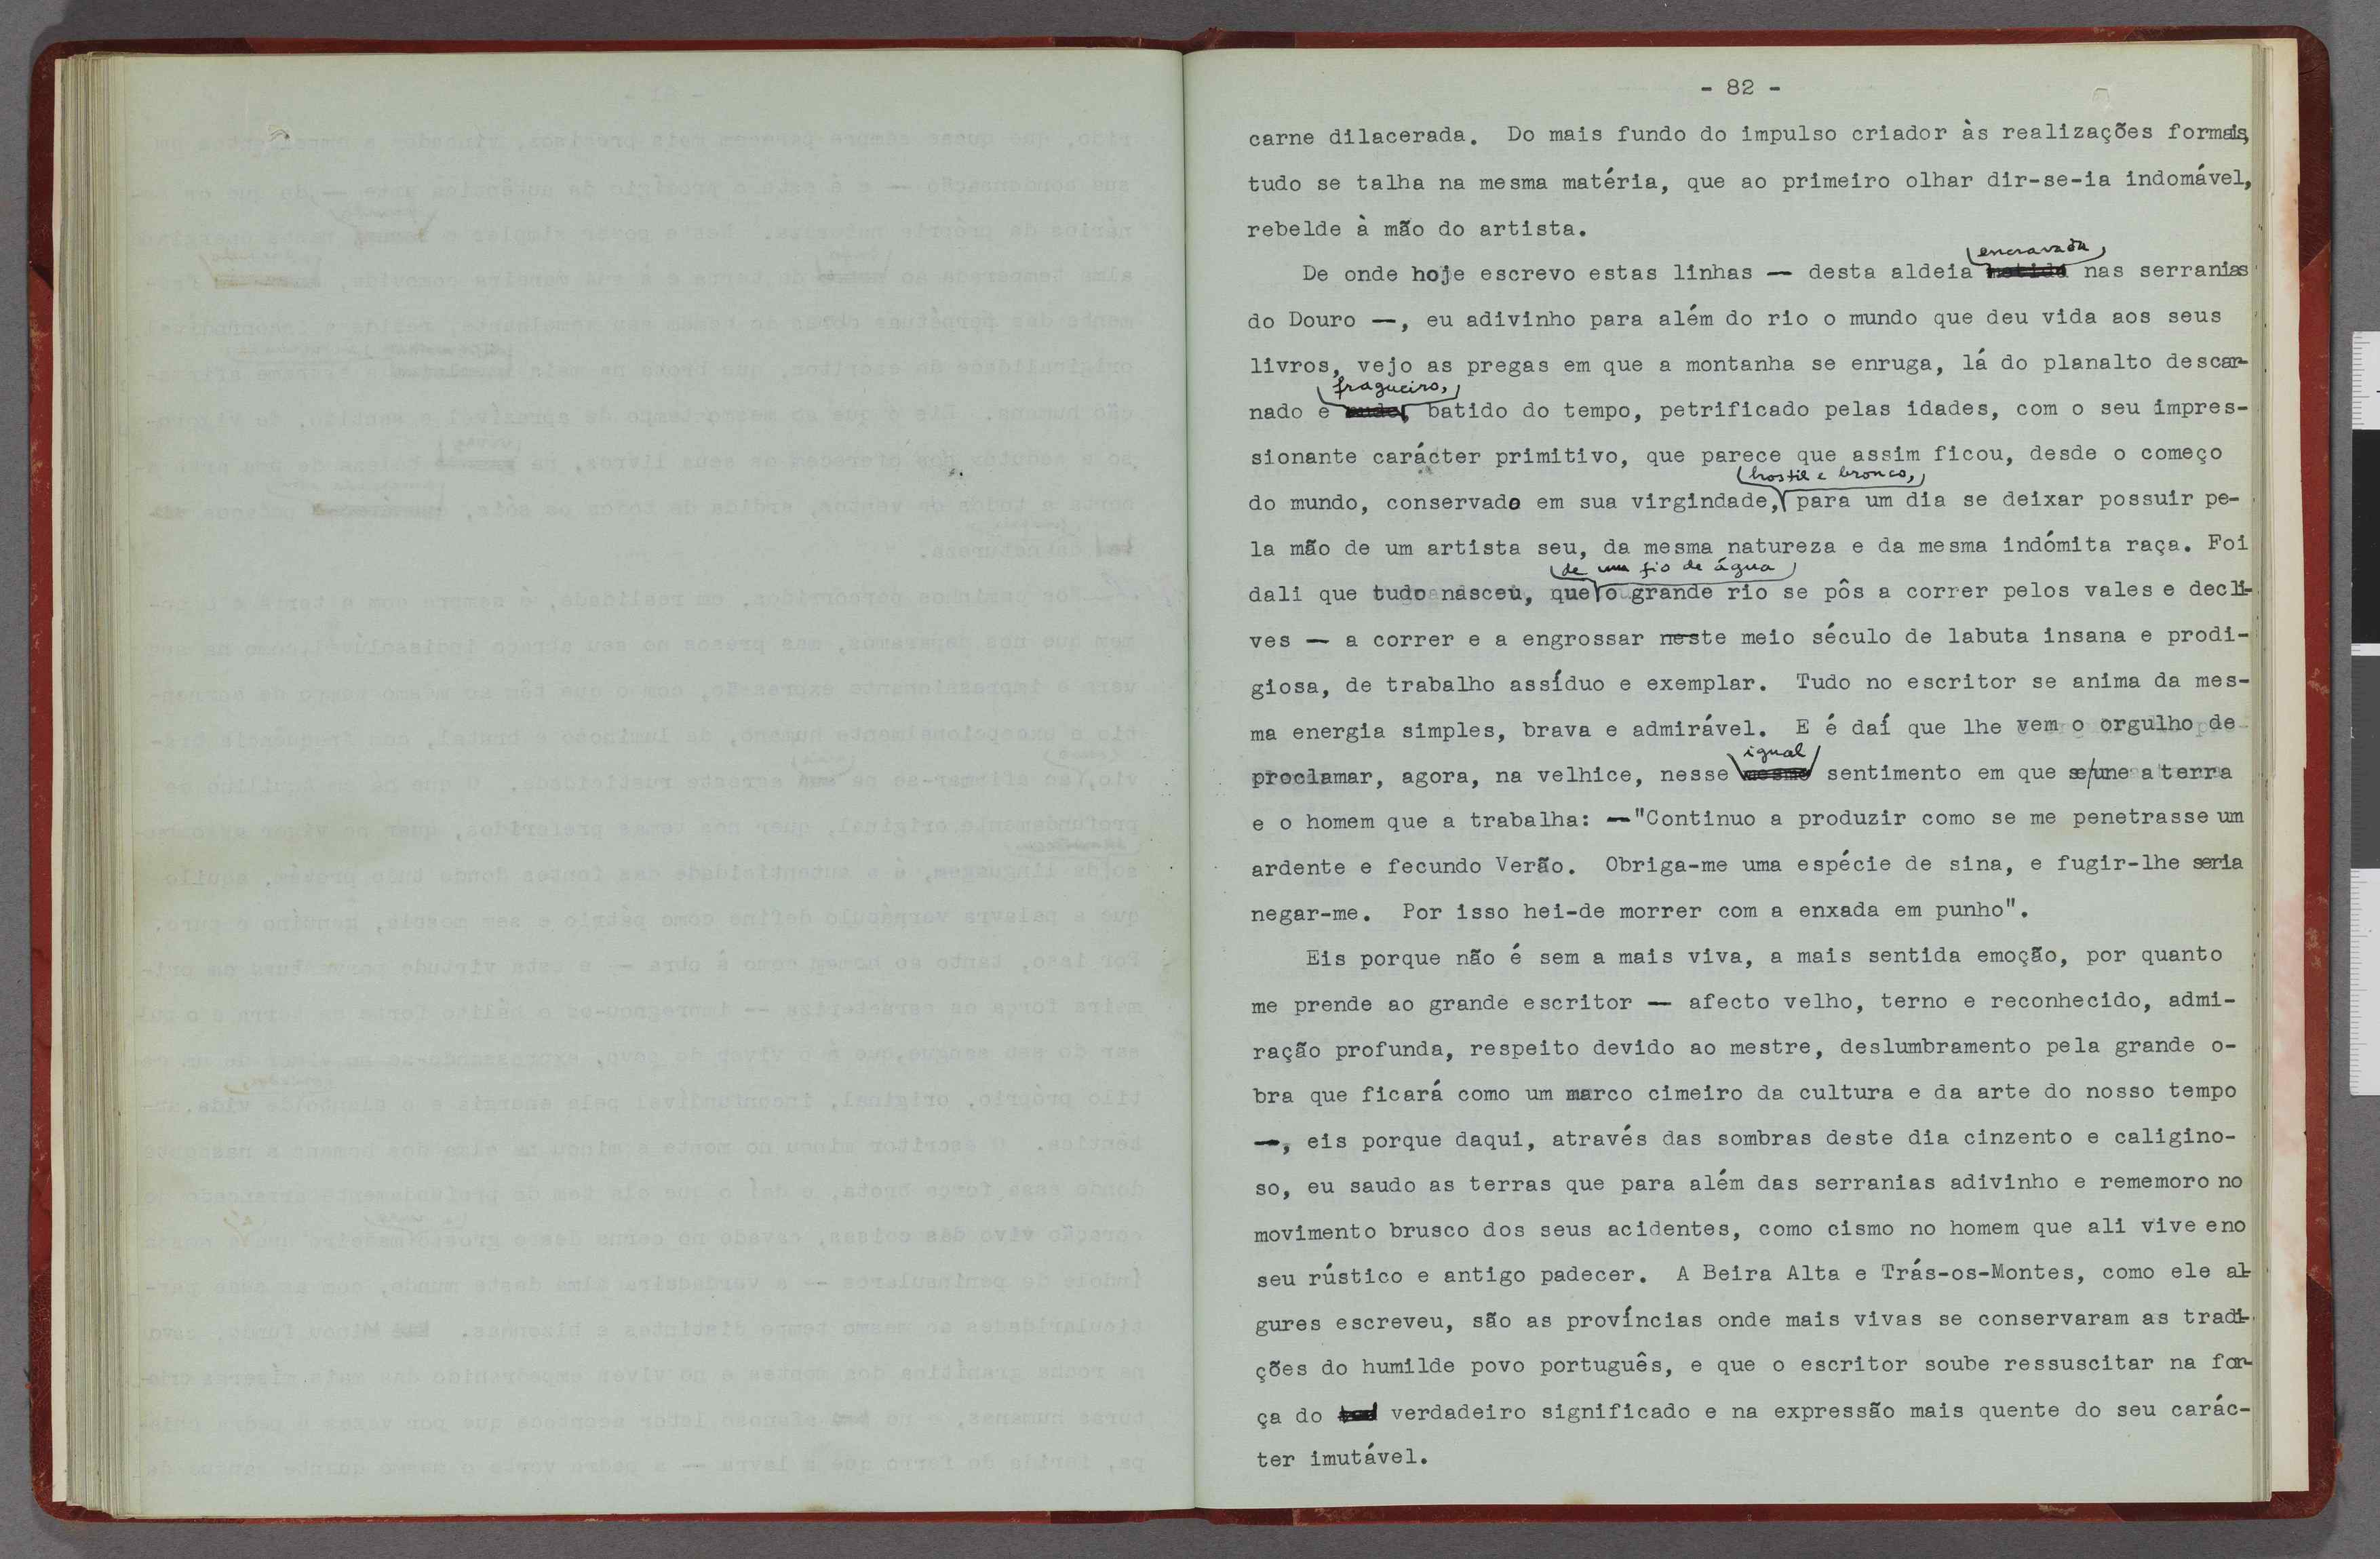 - 82 -
carne dilacerada. Do mais fundo do impulso criador às realizações formais,
tudo se talha na mesma matéria, que ao primeiro olhar dir-se-ia indomável,
rebelde à mão do artista.
encravada
De onde hoje escrevo estas linhas — desta aldeia nas serranias
do Douro —, eu adivinho para além do rio o mundo que deu vida aos seus
livros, vejo as pregas em que a montanha se enruga, lá do planalto descar-
fragueiro,
nado e batido do tempo, petrificado pelas idades, com o seu impres-
sionante carácter primitivo, que parece que assim ficou, desde o começo
hostil e bronco,
do mundo, conservado em sua virgindade, para um dia se deixar possuir pe-
la mão de um artista seu, da mesma natureza e da mesma indómita raça. Foi
de um fio de água
dali que tudo nasceu, que o grande rio se pôs a correr pelos vales e decli-
ves — a correr e a engrossar neste meio século de labuta insana e prodi-
giosa, de trabalho assíduo e exemplar. Tudo no escritor se anima da mes-
ma energia simples, brava e admirável. E é daí que lhe vem o orgulho de
igual
proclamar, agora, na velhice, nesse mesmo sentimento em que se/une a terra
e o homem que a trabalha: —"Continuo a produzir como se me penetrasse um
ardente e fecundo Verão. Obriga-me uma espécie de sina, e fugir-lhe seria
negar-me. Por isso hei-de morrer com a enxada em punho".
Eis porque não é sem a mais viva, a mais sentida emoção, por quanto
me prende ao grande escritor — afecto velho, terno e reconhecido, admi-
ração profunda, respeito devido ao mestre, deslumbramento pela grande o-
bra que ficará como um marco cimeiro da cultura e da arte do nosso tempo
—, eis porque daqui, através das sombras deste dia cinzento e caligino-
so, eu saudo as terras que para além das serranias adivinho e rememoro no
movimento brusco dos seus acidentes, como cismo no homem que ali vive e no
seu rústico e antigo padecer. A Beira Alta e Trás-os-Montes, como ele al-
gures escreveu, são as províncias onde mais vivas se conservaram as tradi-
ções do humilde povo português, e que o escritor soube ressuscitar na for-
ça do verdadeiro significado e na expressão mais quente do seu carác-
ter imutável.